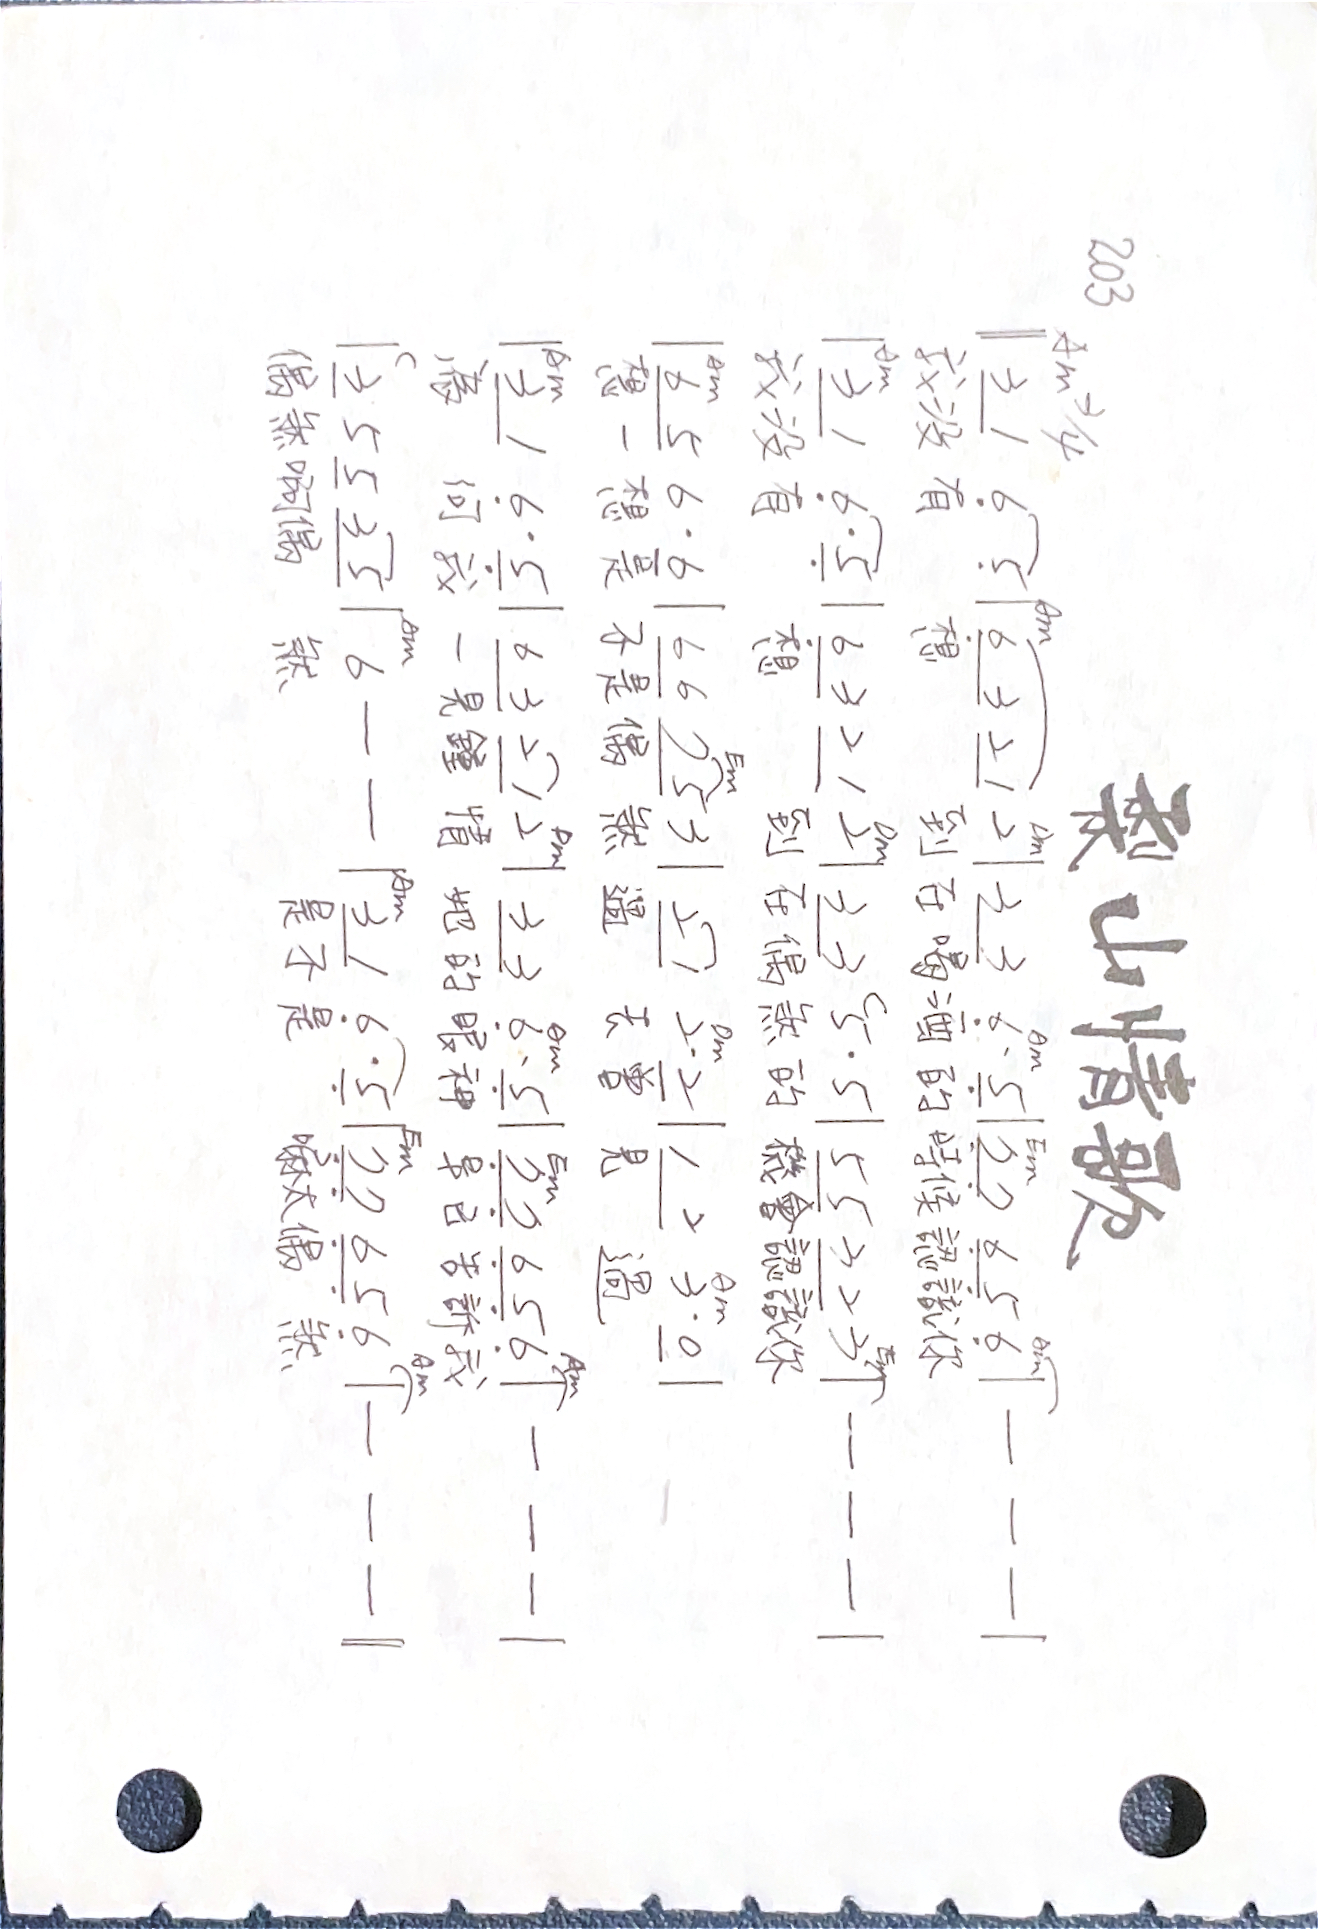 梨山情歌
203
Am 3/4
Am Dm Am Em Am
‖ 3 1 6 5 | 6 3 2 1 2 | 3 3 6 · 5 | 7 7 6 5 6 | — — — |
我没有 想 到在喝酒的時候認識你
Am Dm C Em
| 3 1 6 · 5 | 6 3 2 1 2 | 3 3 5 · 5 | 5 5 3 2 3 | — — — |
我没有 想 到在偶然的機會認識你
Am Em Dm Am
| 6 5 6 · 6 | 6 6 7 5 3 | 2 1 2 · 2 | 1 2 3 · 0 |
想一想是不是偶然過去曾見過
Am Dm Am Em Am
| 3 1 6 · 5 | 6 3 2 1 2 | 3 3 6 · 5 | 7 7 6 5 6 | — — — |
為何我一見鍾情她的眼神早已告訴我
C Am Am Em Am
| 3 5 5 3 5 | 6 — — | 3 1 6 · 5 | 7 7 6 5 6 | — — — ‖
偶然啊偶然 是不是 嘛太偶然